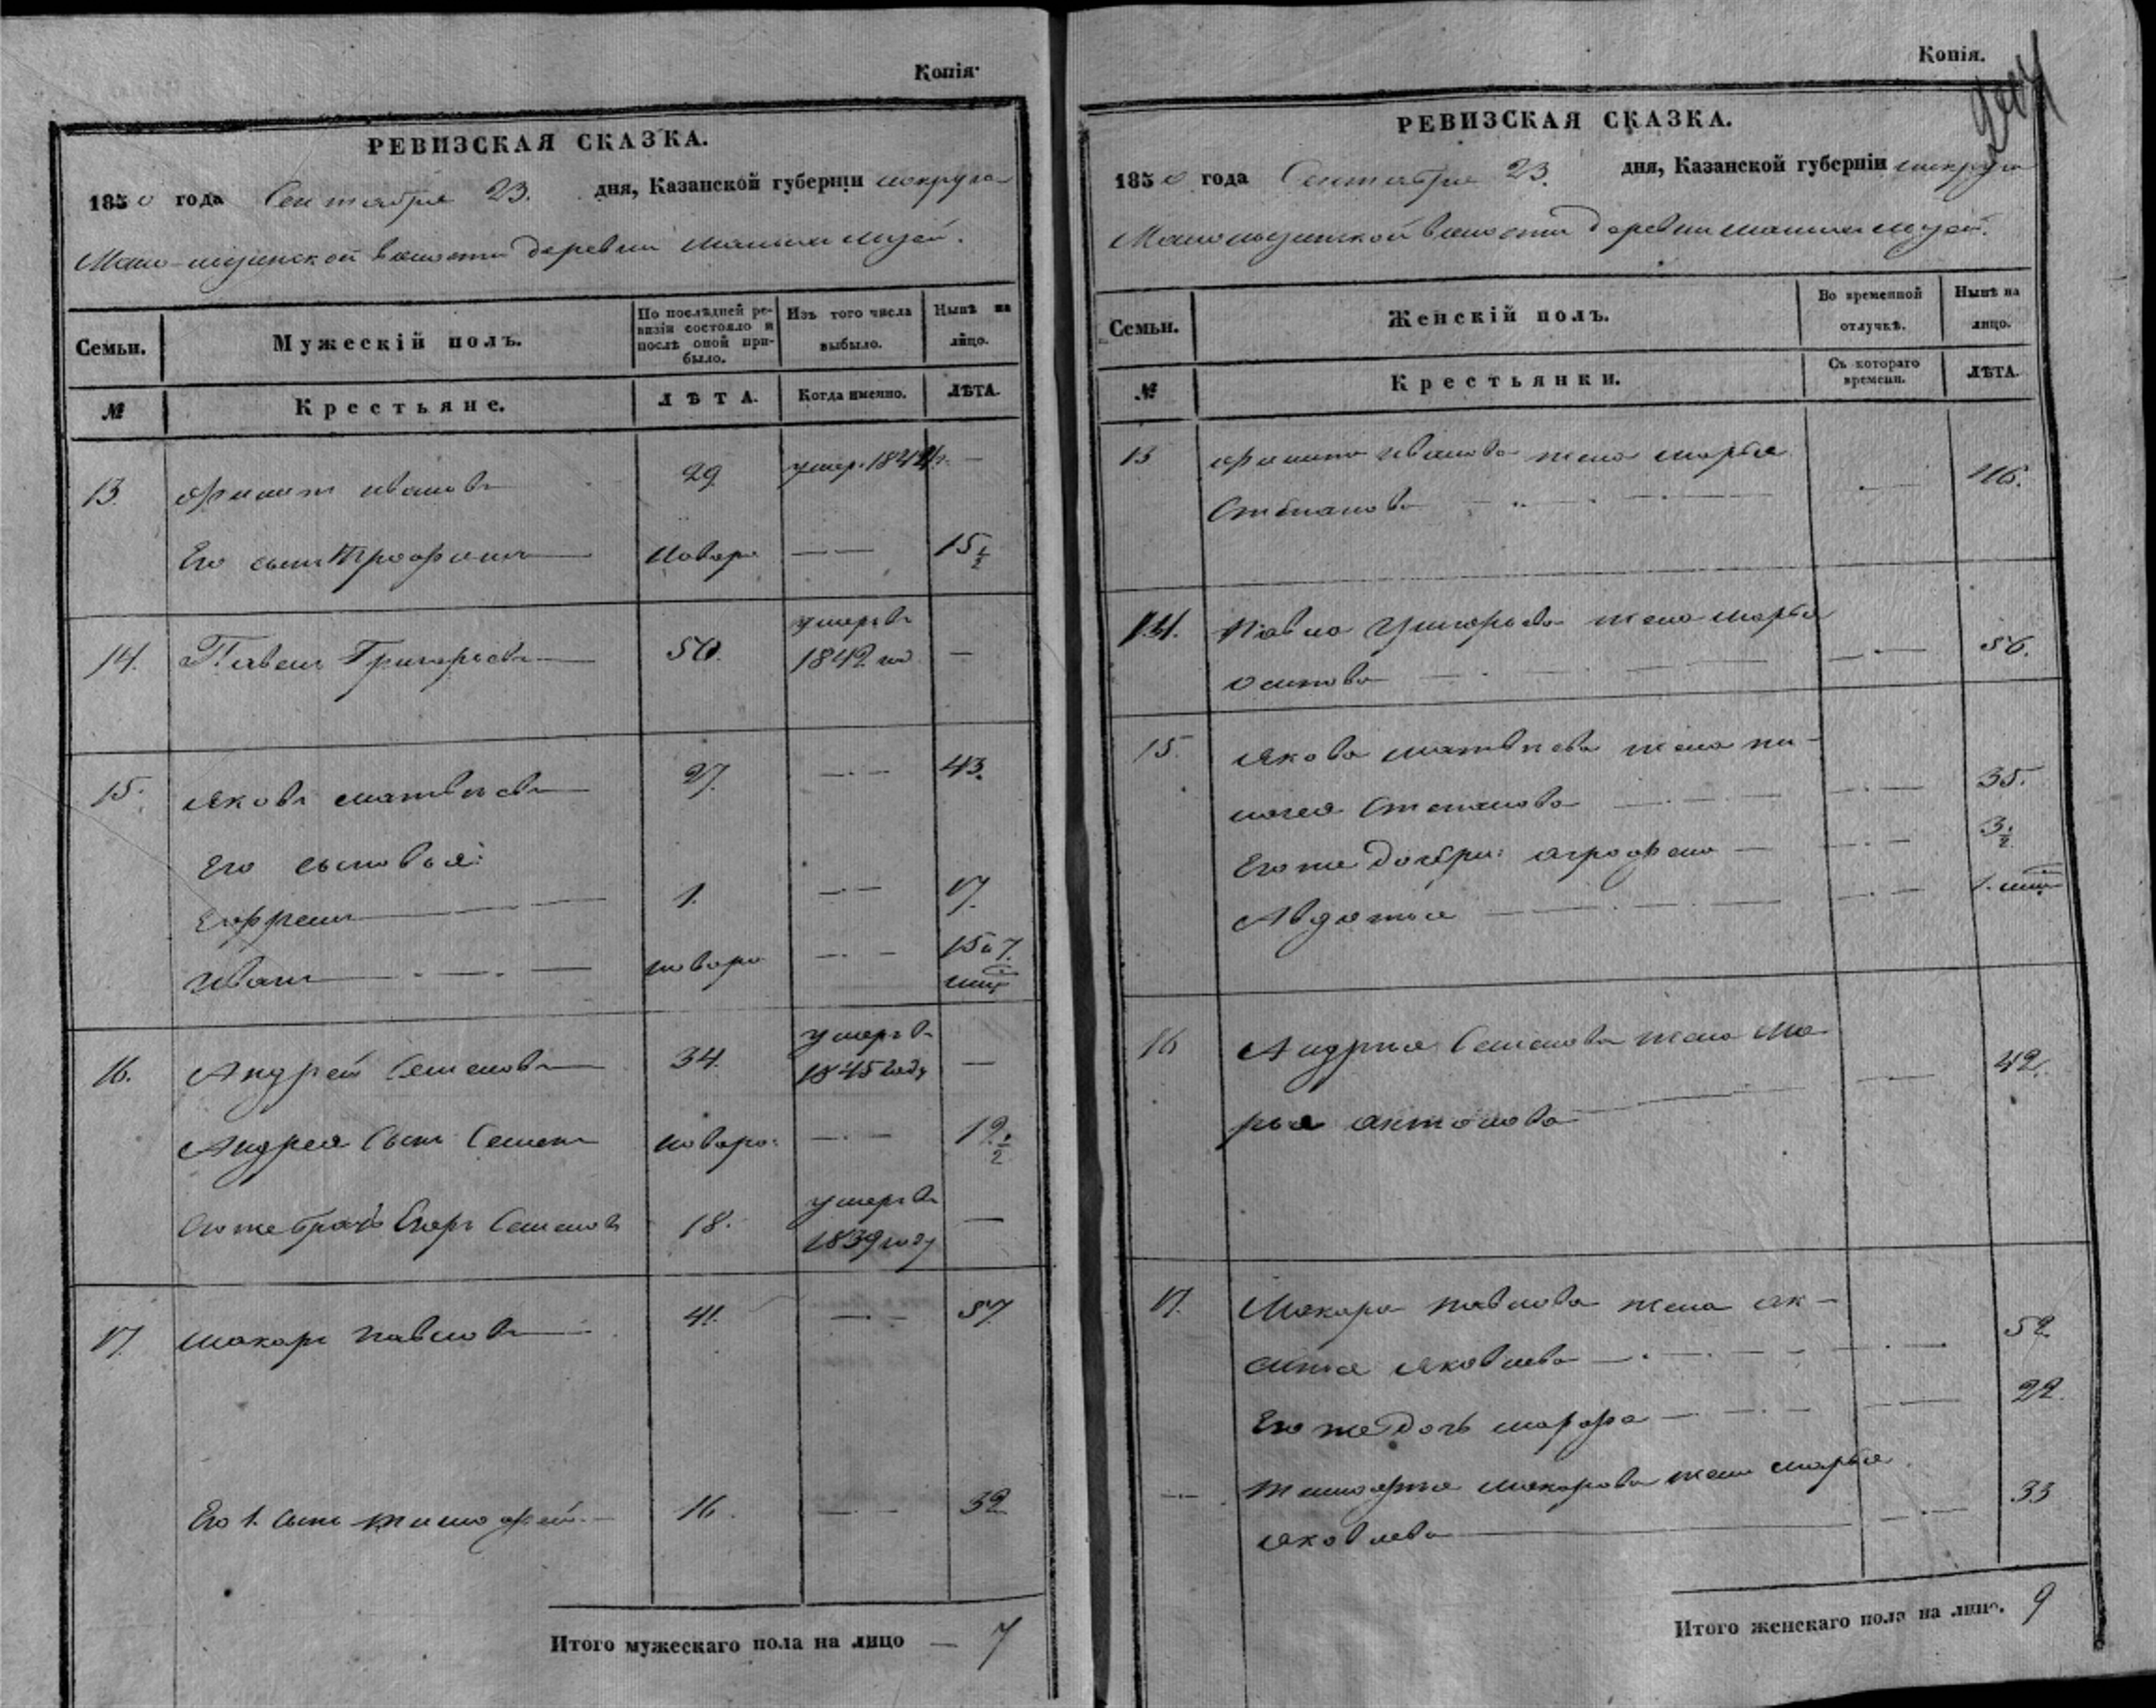 Копія.
РЕВИЗСКАЯ СКАЗКА.
1850 года Сентября 23. дня, Казанской губерніи
волости деревни
Семьи.
Мужескій полъ.
По послѣдней ревизіи состояло и послѣ оной прибыло.
Изъ того числа выбыло.
Нынѣ на лицо.
№
Крестьяне.
ЛѢТА.
Когда именно.
ЛѢТА.
13. Ивановъ 29 умер. —
Его сынъ Трофимъ новоро — 15½
14. Павелъ Григорьевъ 50. умеръ въ 1842 го —
15. Яковъ Матвѣевъ 27. — 43.
Его сыновья:
Ефремъ 1. — 17.
Иванъ новоро — 15 и 7.
16. Андрей Семеновъ 34. умеръ въ 1845 году —
Андрея сынъ Семенъ новоро: — 12½
Его же братъ Егоръ Семеновъ 18. умеръ въ 1839 году —
17. Макаръ Павловъ 41. — 57
Его 1. сынъ Тимофей 16. — 32
Итого мужескаго пола на лицо — 7
Копія.
РЕВИЗСКАЯ СКАЗКА.
1850 года Сентября 23. дня, Казанской губерніи
волости деревни
Семьи.
Женскій полъ.
Во временной отлучкѣ.
Нынѣ на лицо.
№
Крестьянки.
Съ котораго времени.
ЛѢТА.
13 Иванова жена Марья
Степанова — 46.
14. Павла Григорьева жена Марья
Осипова — 56.
15. Якова Матвѣева жена Пи-
лагея Степанова — 35.
Его же дочери: Аграфена — 3½
Авдотья — 1.
16 Андрея Семенова жена Ма-
рья Антонова — 42.
17. Макара Павлова жена Ак-
синья Яковлева — 52
Его же дочь Марфа — 22.
— Тимофея Макарова жена Марья
Яковлева — 33
Итого женскаго пола на лицо. 9